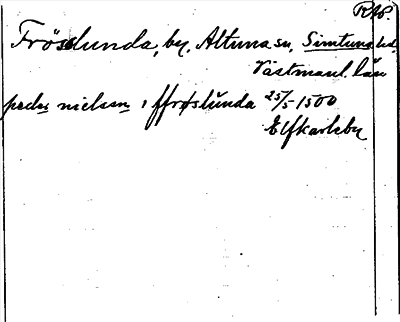 RAP.
Fröslunda, by, Altuna sn, Simtuna hd.
Västmanl. län
peder nielsson i ffrøslunda 25/5 1500
Elfkarleby